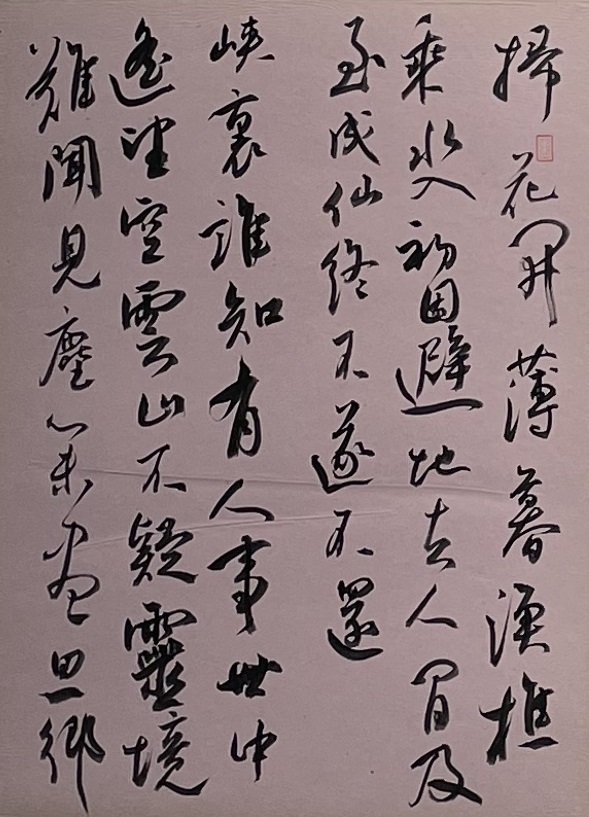 掃花開薄暮漁樵
乘水入初因避地去人間及
至成仙終不遂不還
峽裏誰知有人事世中
遙望空雲山不疑靈境
難聞見塵心未盡思鄉